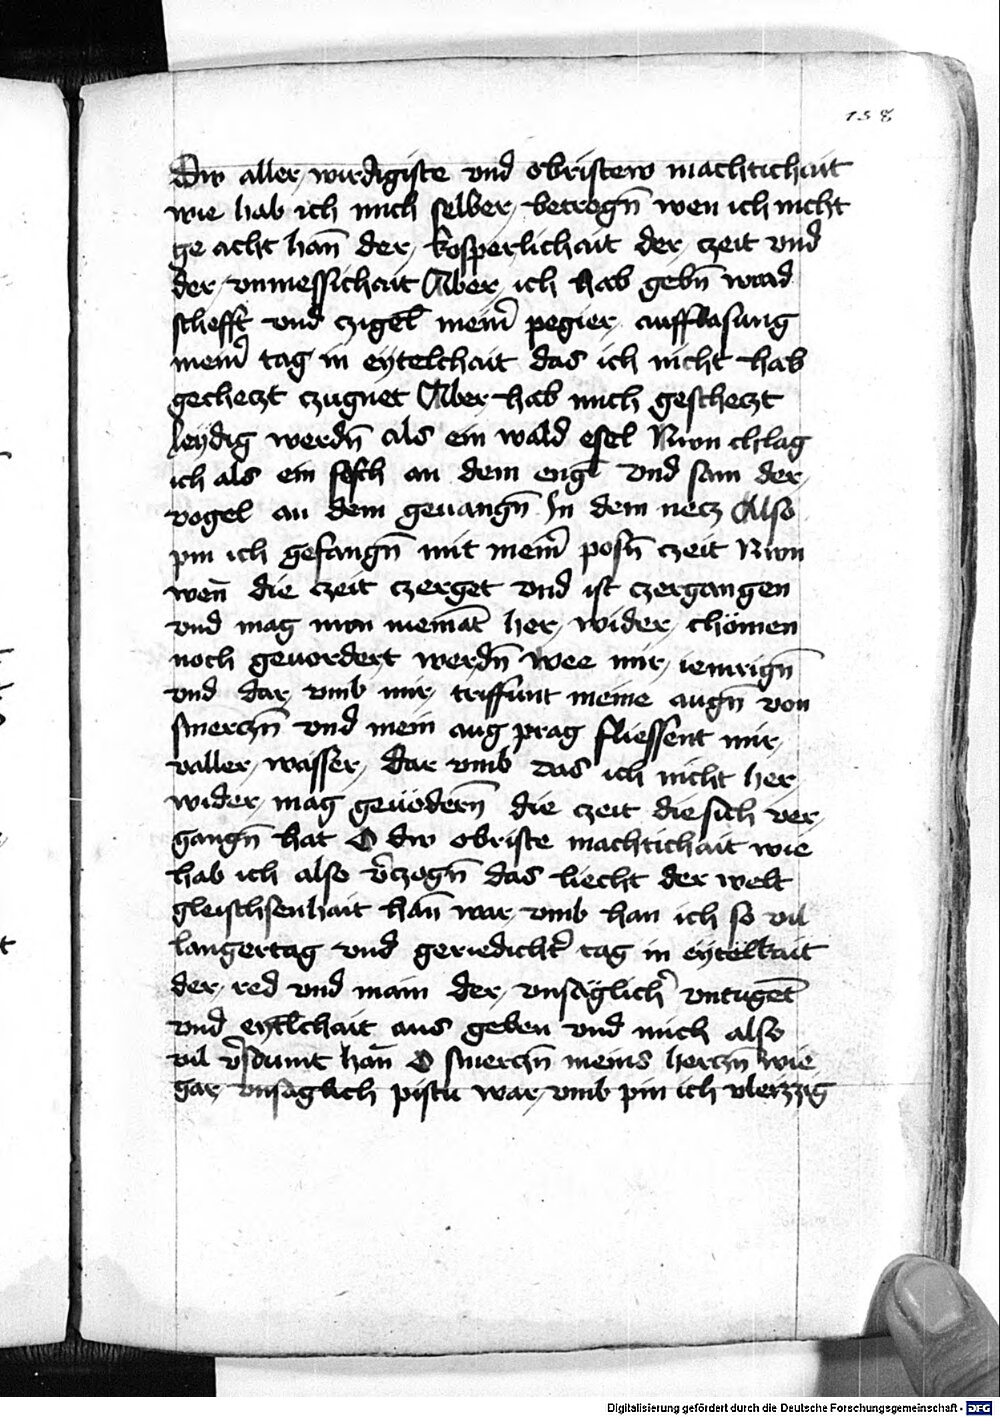 158
Dw aller wirdigiste vnd obristew machtichait
wie hab ich mich selber betrogn̄ wen ich nicht
ge acht han̄ der kosperlichait der czeit vnd
der vnmessichait Aber ich hab gebn̄
schefft vnd czigel mein̄ pegier aufflasung
mein̄ tag in eytelchait das ich nicht hab
gechecȝt czugnet Aber hab mich geschecȝt
leydig werdn̄ als ein wald esel Nwn chlag
ich als ein fisch an dem engl vnd sam der
vogel an dem geuangn̄ In dem necȝ Also
pin ich gefangn̄ mit mein̄ posn̄ czeit Nwn
wen̄ die czeit czerget vnd ist czergangen
vnd mag nwn niemāt her wider chömen
noch geuordert werdn̄ wee mir iemrign̄
vnd dar vmb mir triffunt meine augn̄ von
smerczn̄ vnd mein aug prag fliessent mir
valler wasser dar vmb das ich nicht her
wider mag geuödern̄ die czeit die sich ver
gangn̄ hat O dw obriste machtichait wie
hab ich also v̄czogn̄ das liecht der welt
gleischsenhait han̄ war vmb han ich so vil
langertag vnd geriedicht̄ tag in eytelkait
der red vnd main der vnsäglich̄ vntugēt
vnd eytl̄chait aus geben vnd mich also
vil v̄saumt han̄ O smerczn̄ meins herczn̄ wie
gar vnsäglich pistu war vmb pin ich vberzzig
Digitalisierung gefördert durch die Deutsche Forschungsgemeinschaft - DFG